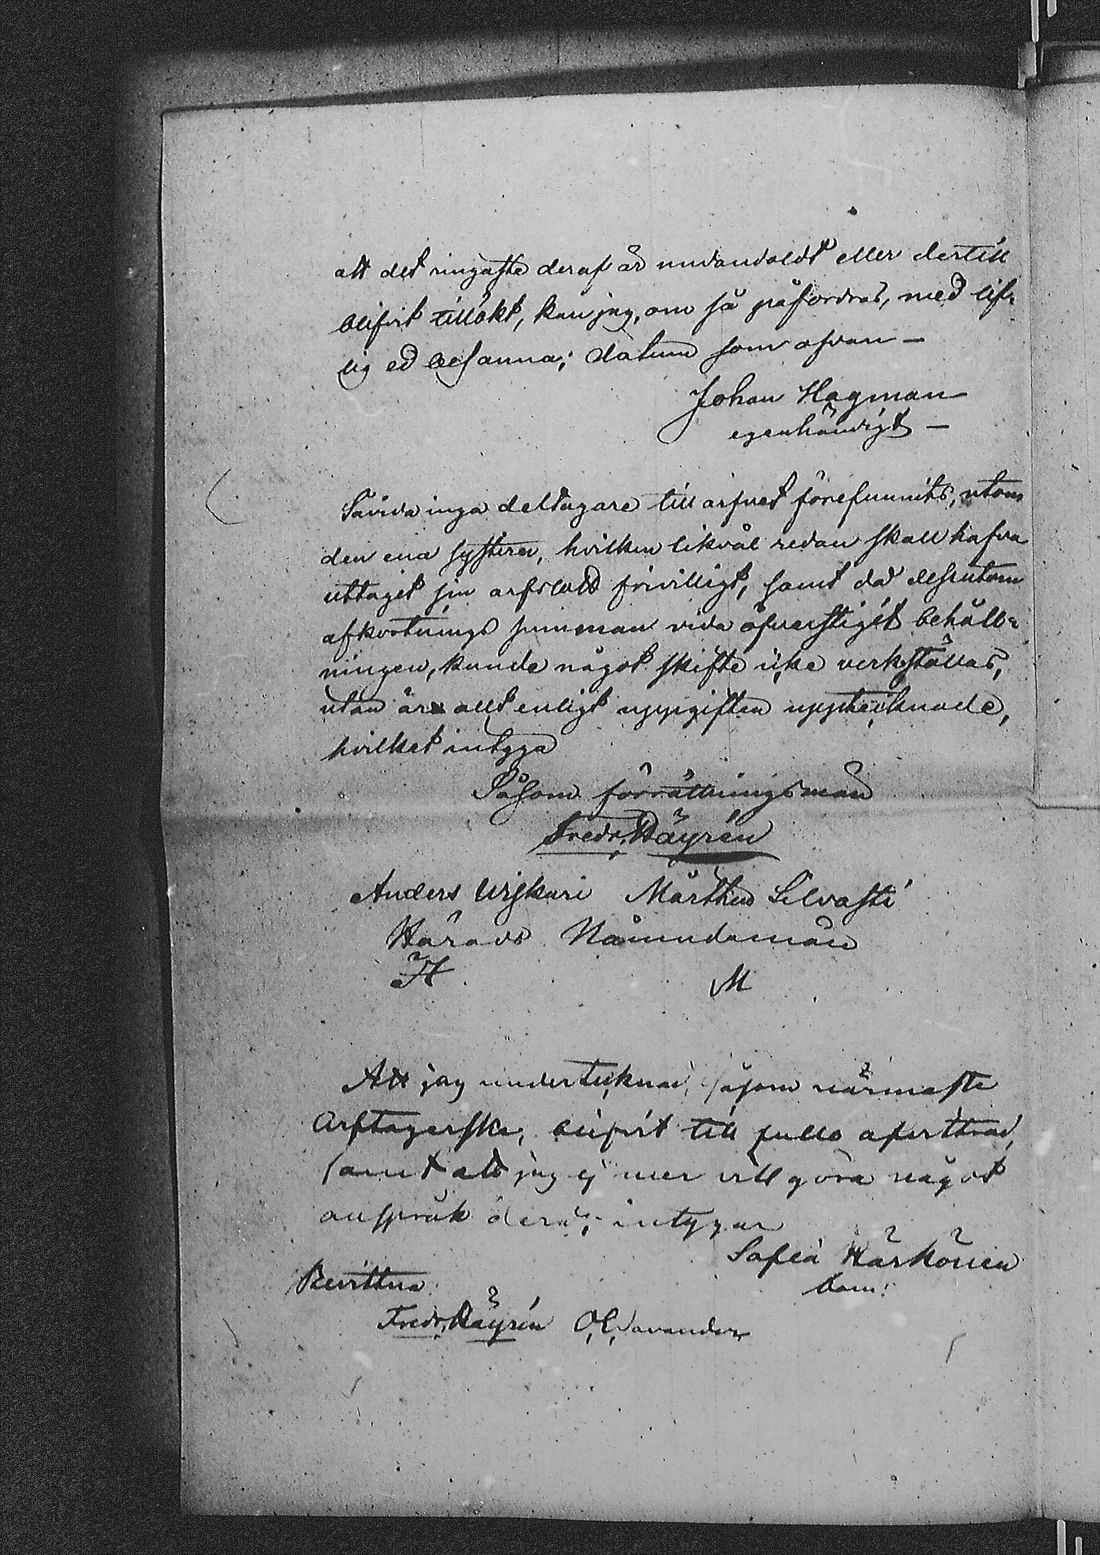 att det ringaste deraf är undandoldt eller dertill
blifvit tillökt, kan jag, om så påfordras, med lif-
lig ed besanna; datum som ofvan —
Johan Hagman
egenhändigt —
Såvida inga deltagare till arfvet förefunnits, utom
den ena systern, hvilken likväl redan skall hafva
uttagit sin arfslott frivilligt, samt då dessutom
afkortnings summan vida öfverstigit behåll-
ningen, kunde något skifte icke verkställas,
utan är allt enligt uppgiften upptecknade,
hvilket intyga
Såsom förrättningsmän
Fredr. Häyrén
Anders Uiskari Mårthen Silvasti
Härads Nämndemän
H M
Att jag undertecknad, såsom närmaste
Arftagerska, blifvit till fullo afvittrad,
samt att jag ej mer vill göra något
anspråk derå, intygar
Sofia Härkönen
bom:
Bevittna
Fredr. Häyrén